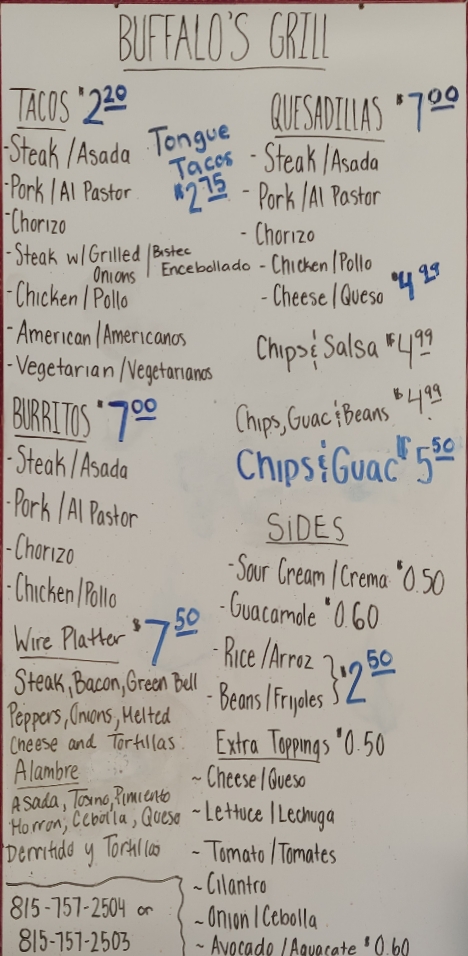 BUFFALO'S GRILL
TACOS $2.20
-Steak/Asada
-Pork/Al Pastor
-Chorizo
-Steak w/Grilled Onions | Bistec Encebollado
-Chicken/Pollo
-American/Americanos
-Vegetarian/Vegetarianos
Tongue
Tacos
$2.75
BURRITOS $7.00
-Steak/Asada
-Pork/Al Pastor
-Chorizo
-Chicken/Pollo
Wire Platter $7.50
Steak, Bacon, Green Bell
Peppers, Onions, Melted
Cheese and Tortillas.
Alambre
Asada, Tosino, Pimiento
Morron, Cebolla, Queso
Derritido y Tortillas
815-757-2504 or
815-757-2503
QUESADILLAS $7.00
- Steak/Asada
- Pork/Al Pastor
- Chorizo
- Chicken/Pollo
- Cheese/Queso $4.99
Chips & Salsa $4.99
Chips, Guac & Beans $4.99
Chips & Guac $5.50
SiDES
-Sour Cream/Crema $0.50
-Guacamole $0.60
-Rice/Arroz
-Beans/Frijoles } $2.50
Extra Toppings $0.50
~ Cheese/Queso
~ Lettuce/Lechuga
~ Tomato/Tomates
~ Cilantro
~ Onion/Cebolla
~ Avocado/Aguacate $0.60